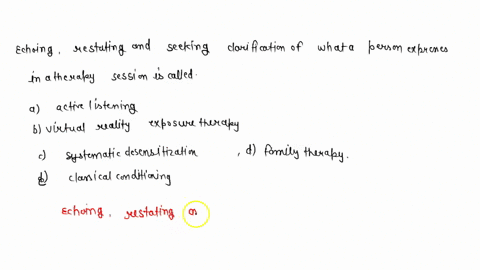 Echoing, restating and seeking clarification of what a person expresses
in a therapy session is called.
a) active listening
b) virtual reality exposure therapy
c) systematic desensitization , d) family therapy.
e) classical conditioning
Echoing, restating